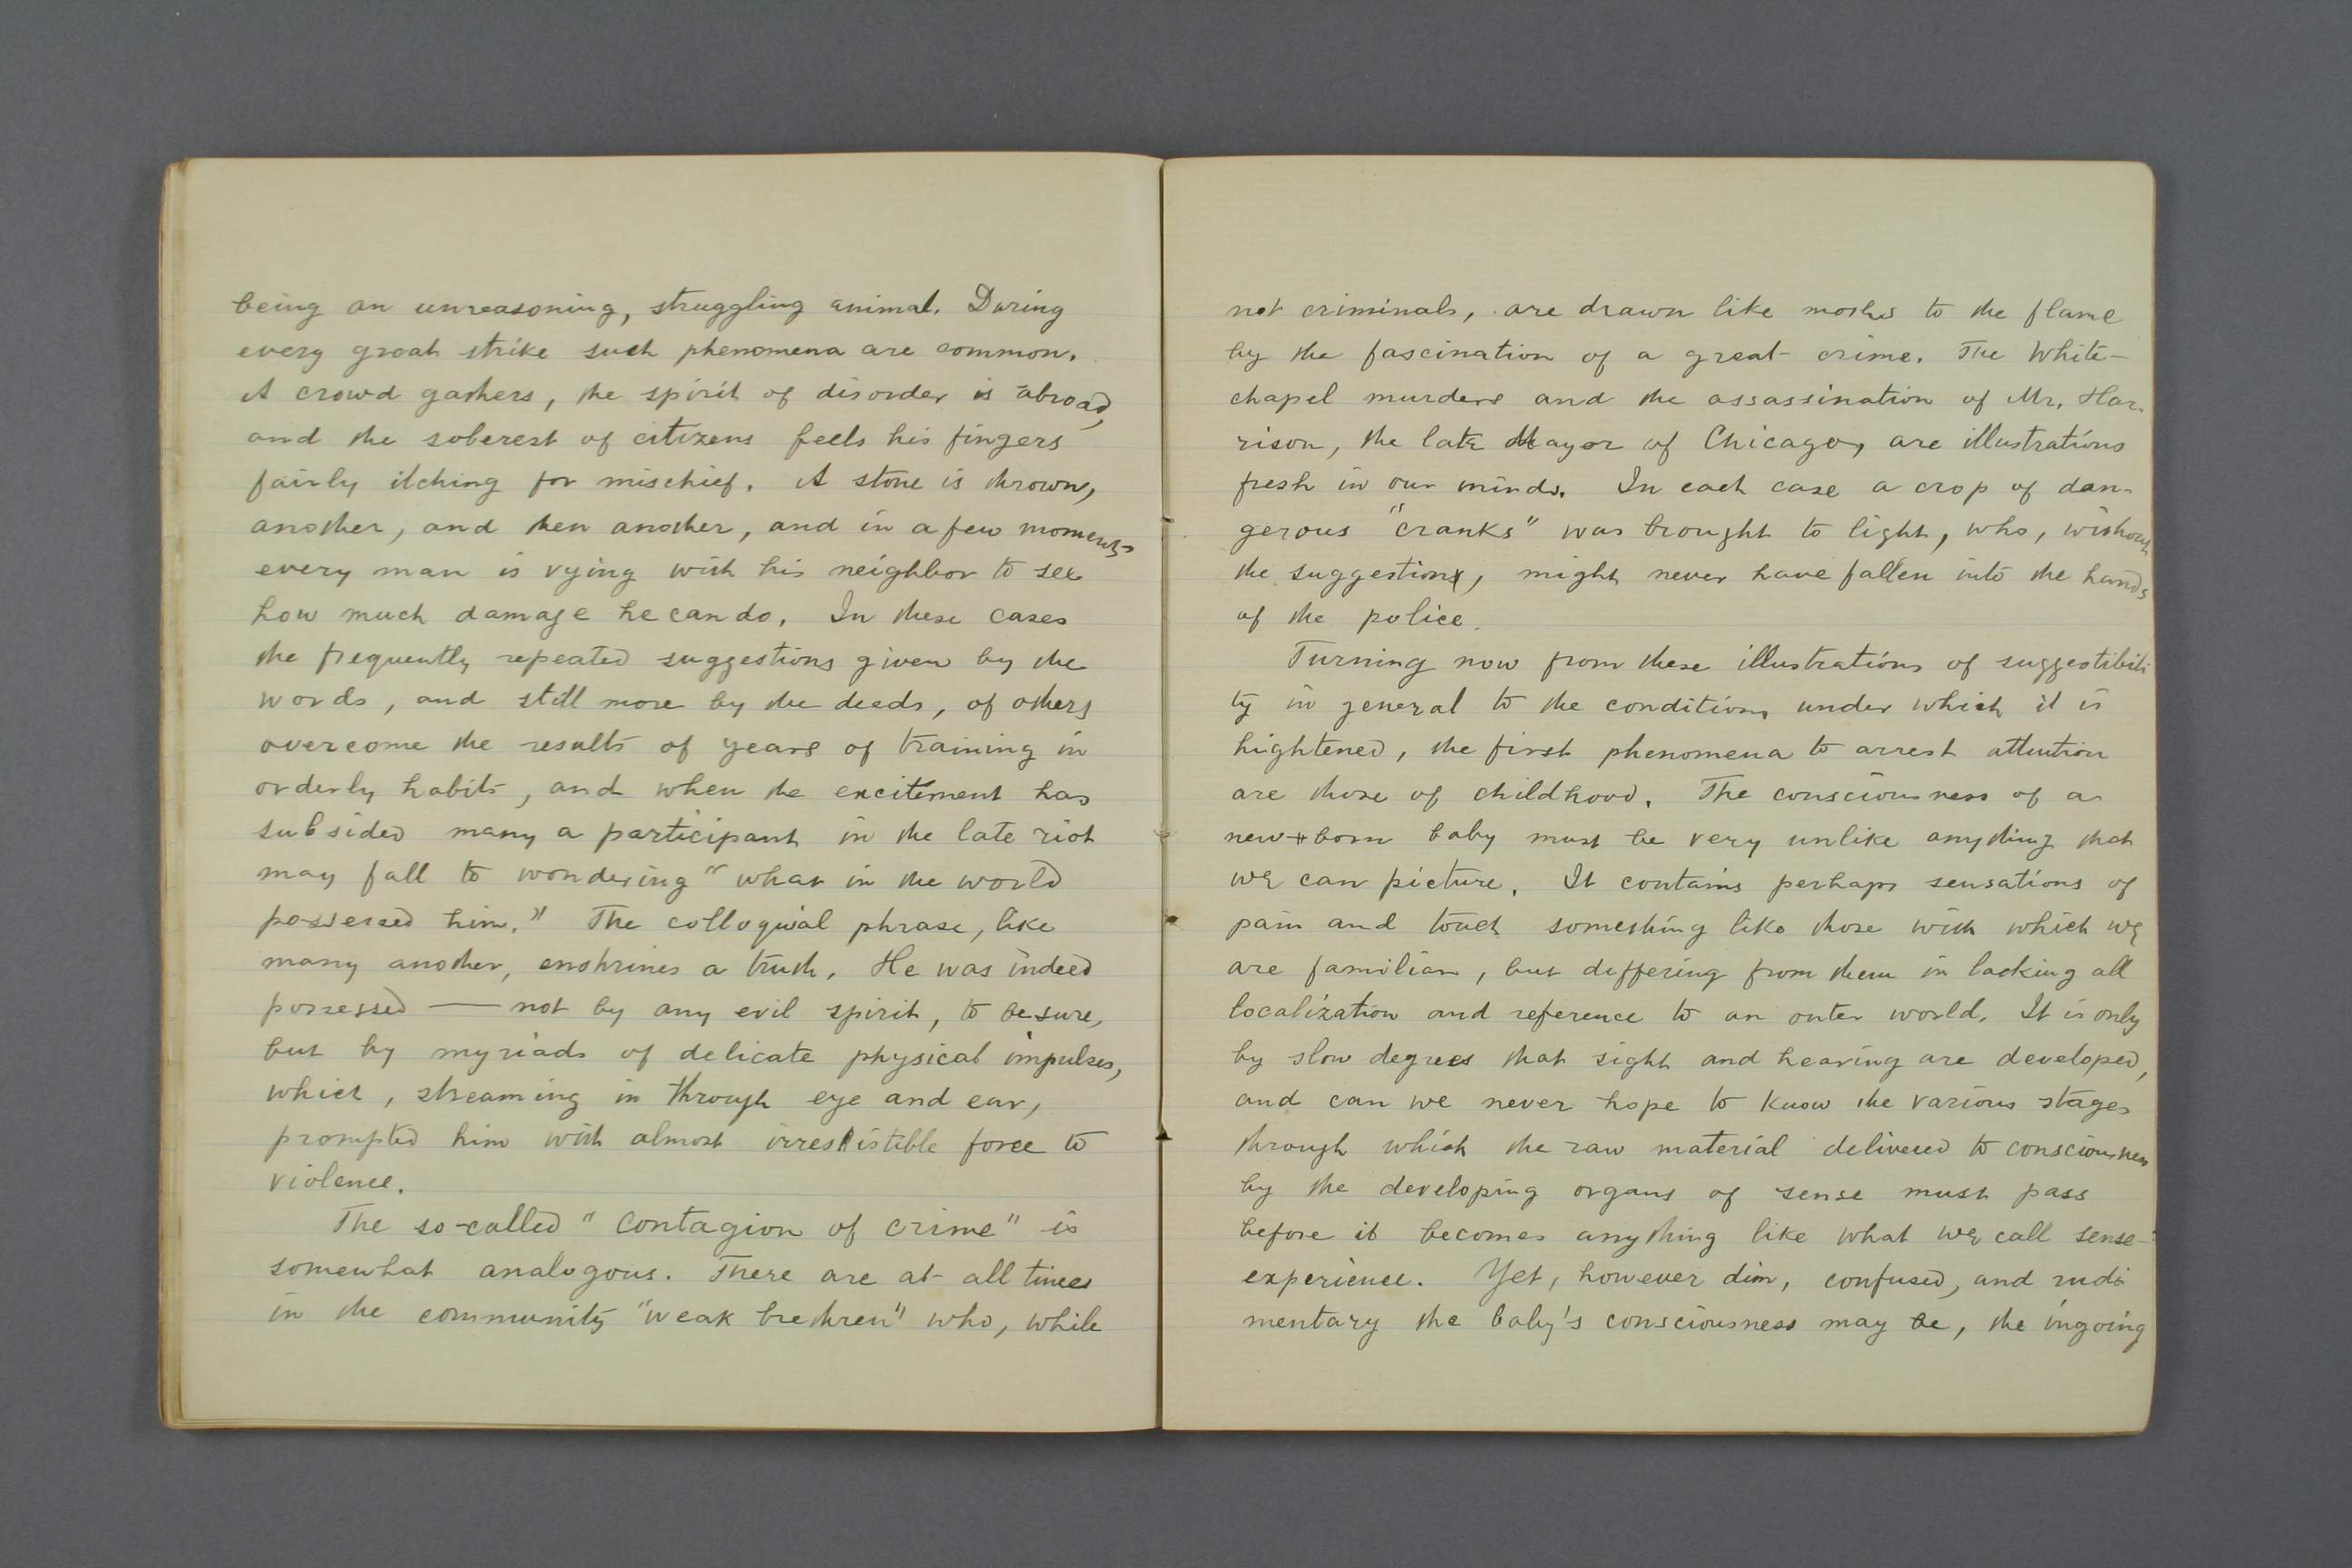 being an unreasoning, struggling animal. During
every great strike such phenomena are common.
A crowd gathers, the spirit of disorder is abroad,
and the soberest of citizens feels his fingers
fairly itching for mischief. A stone is thrown,
another, and then another, and in a few moments
every man is vying with his neighbor to see
how much damage he can do. In these cases
the frequently repeated suggestions given by the
words, and still more by the deeds, of others
overcome the results of years of training in
orderly habits, and when the excitement has
subsided many a participant in the late riot
may fall to wondering "what in the world
possessed him." The colloquial phrase, like
many another, enshrines a truth. He was indeed
possessed — not by any evil spirit, to be sure,
but by myriads of delicate physical impulses,
which, streaming in through eye and ear,
prompted him with almost irresistible force to
violence.
The so-called "contagion of crime" is
somewhat analogous. There are at all times
in the community "weak brethren" who, while
not criminals, are drawn like moths to the flame
by the fascination of a great crime. The White-
chapel murders and the assassination of Mr. Har-
rison, the late Mayor of Chicago, are illustrations
fresh in our minds. In each case a crop of dan-
gerous "cranks" was brought to light, who, without
the suggestion, might never have fallen into the hands
of the police.
Turning now from these illustrations of suggestibili
ty in general to the conditions under which it is
hightened, the first phenomena to arrest attention
are those of childhood. The consciousness of a
new-born baby must be very unlike anything that
we can picture. It contains perhaps sensations of
pain and touch something like those with which we
are familiar, but differing from them in lacking all
localization and reference to an outer world. It is only
by slow degrees that sight and hearing are developed,
and can we never hope to know the various stages
through which the raw material delivered to consciousness
by the developing organs of sense must pass
before it becomes anything like what we call sense-
experience. Yet, however dim, confused, and rudi
mentary the baby's consciousness may be, the ingoing